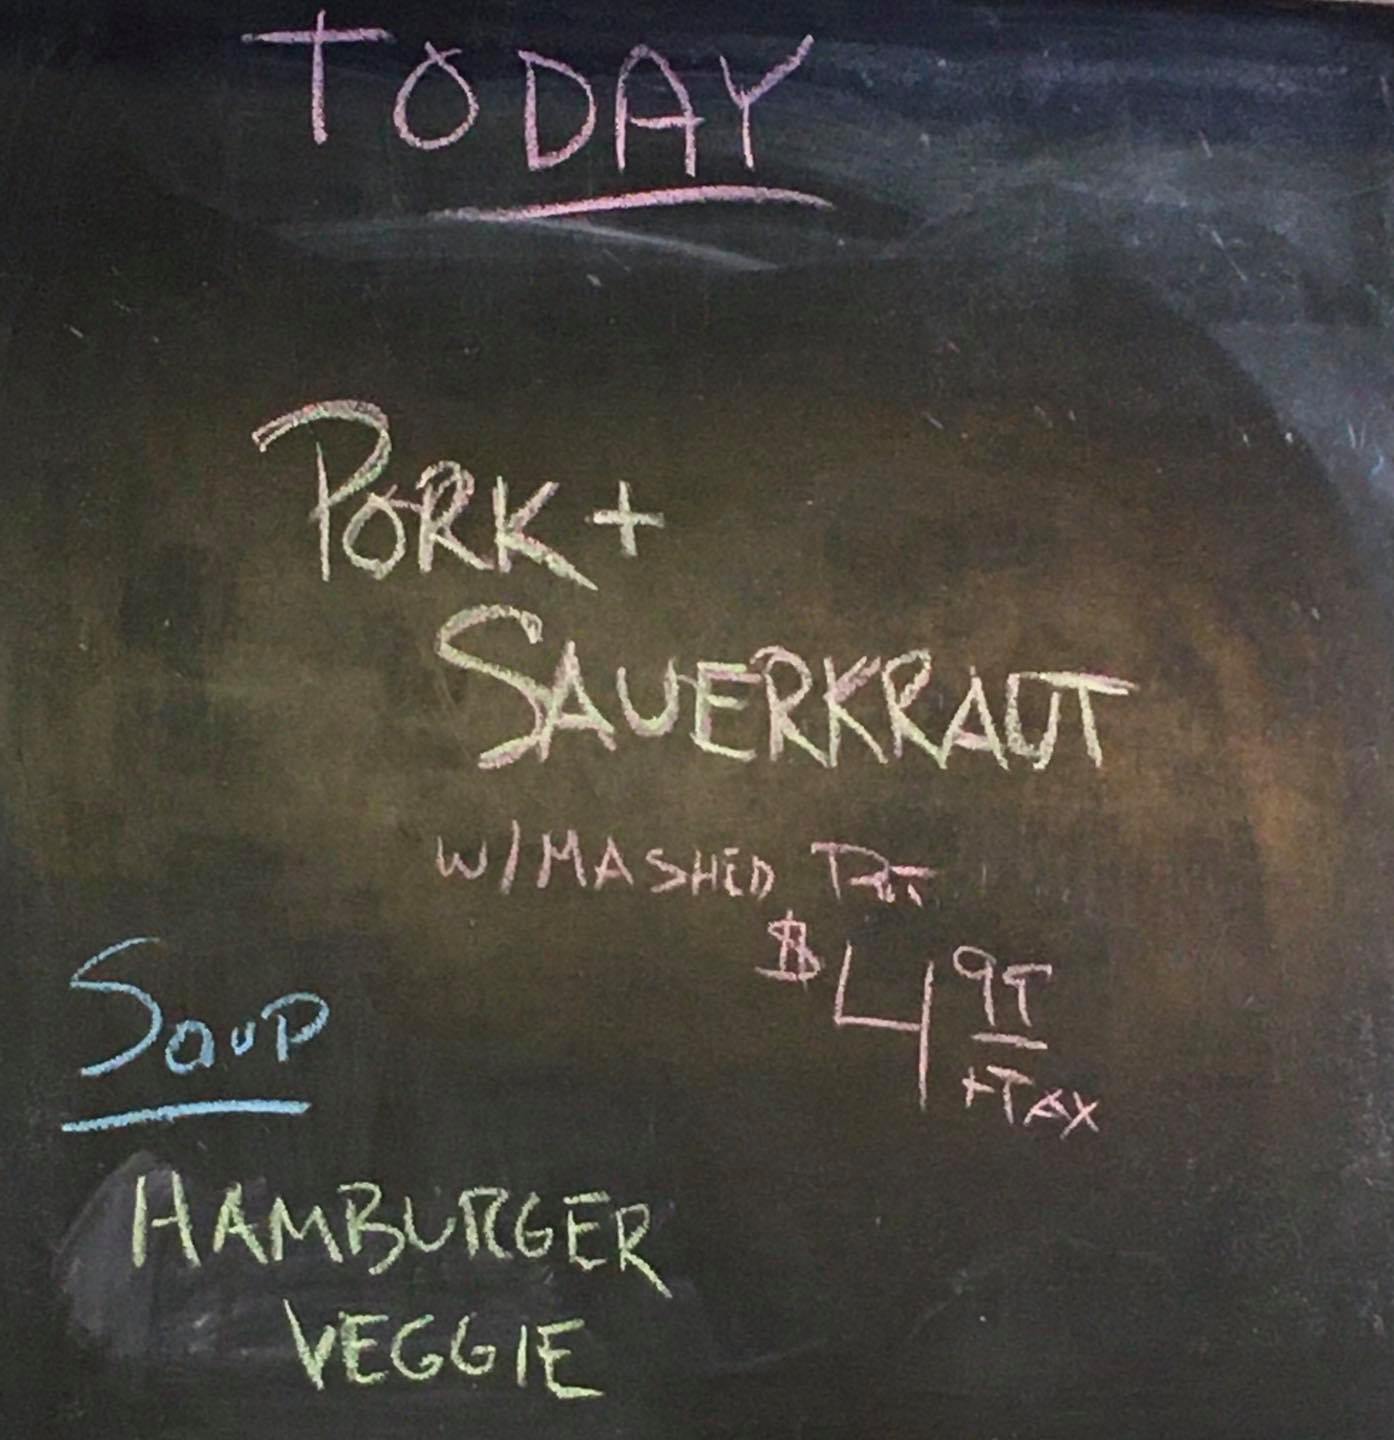 TODAY
PORK +
SAUERKRAUT
W/MASHED POT
$4 95
+TAX
SOUP
HAMBURGER
VEGGIE